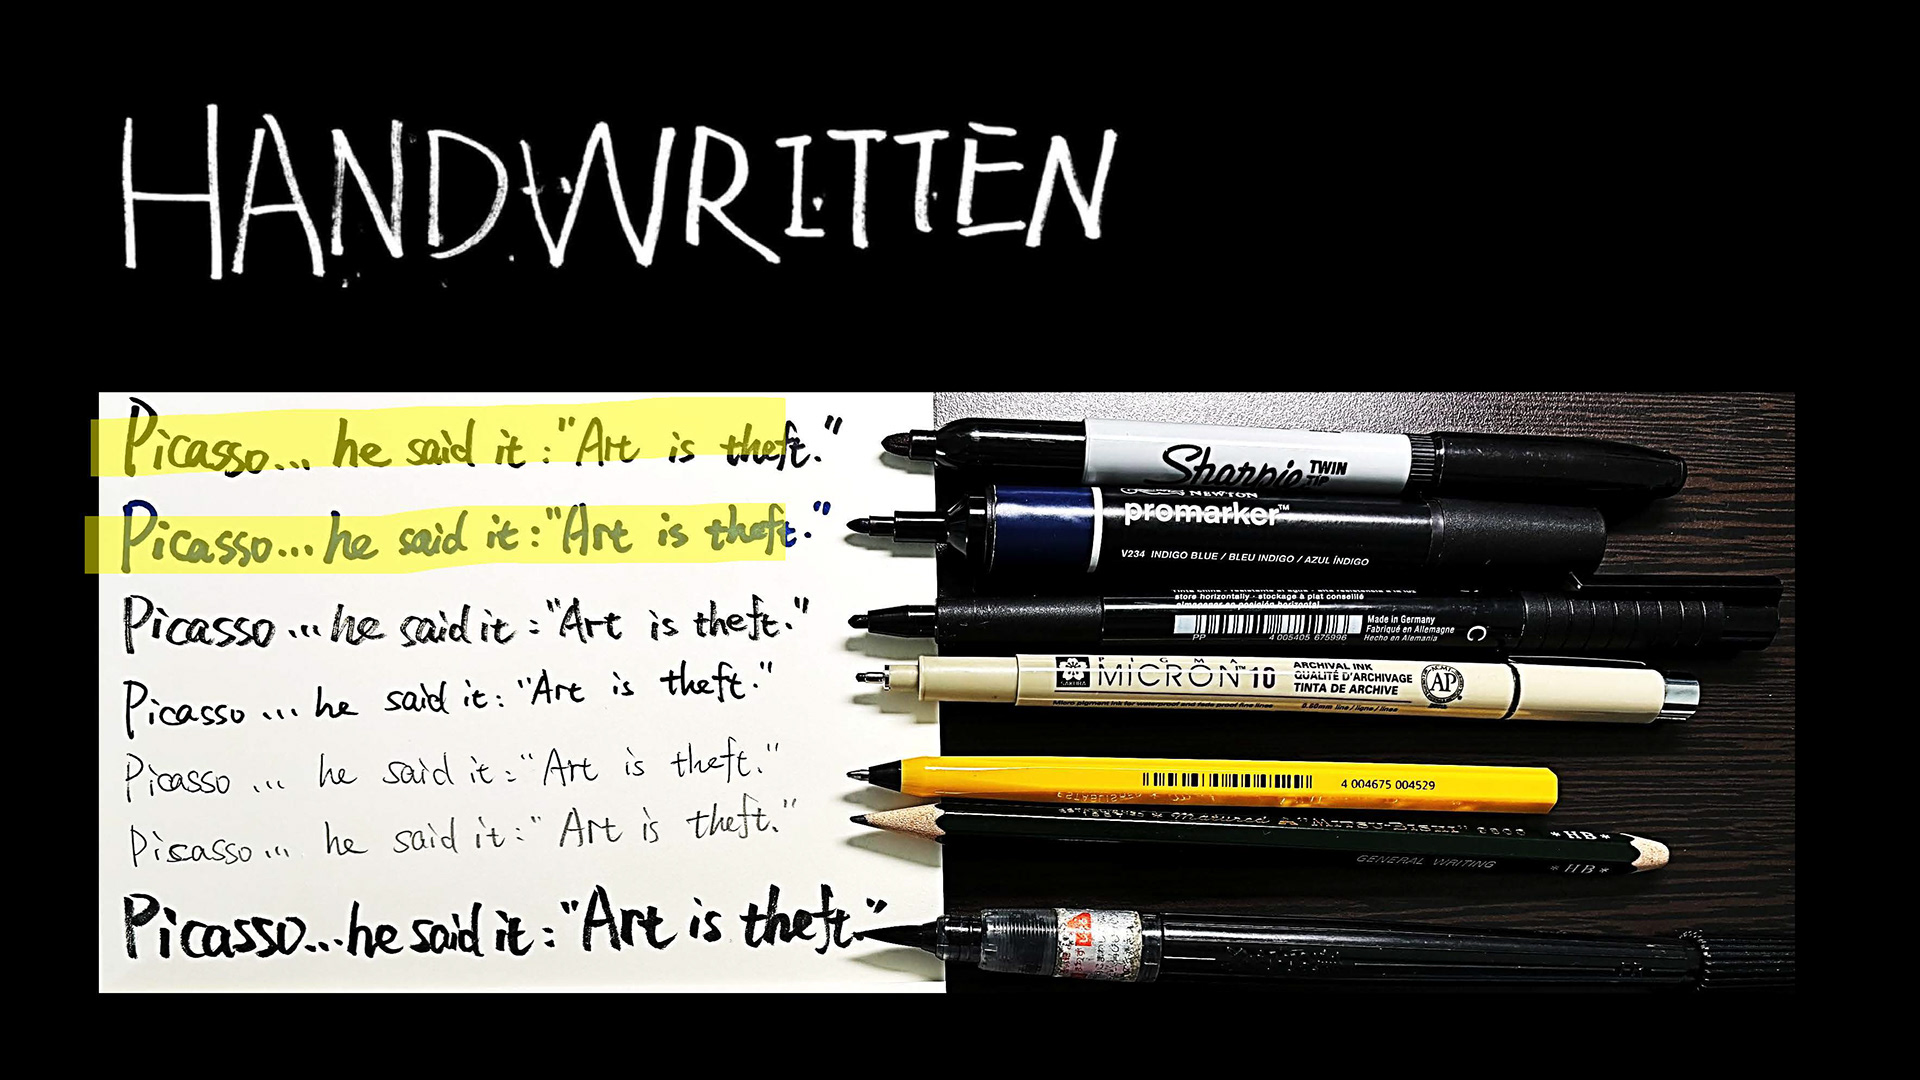 HANDWRITTEN
Picasso... he said it: "Art is theft."
Sharpie TWIN TIP
Picasso... he said it: "Art is theft."
NEWTON
promarker™
V234 INDIGO BLUE / BLEU INDIGO / AZUL ÍNDIGO
Picasso... he said it: "Art is theft."
store horizontally · stockage à plat conseillé
almacenar en posición horizontal
PP 4 005405 675996
Made in Germany
Fabriqué en Allemagne
Hecho en Alemania
C
Picasso ... he said it: "Art is theft."
PIGMA
MICRON™ 10
SAKURA
ARCHIVAL INK
QUALITÉ D'ARCHIVAGE
TINTA DE ARCHIVE
AP
Micro pigment ink for waterproof and fade proof fine lines
0.60mm line / ligne / linea
Picasso ... he said it: "Art is theft."
4 004675 004529
Picasso ... he said it: "Art is theft."
Matured
"MITSU-BISHI" 9800 *HB*
GENERAL WRITING *HB*
Picasso... he said it: "Art is theft."